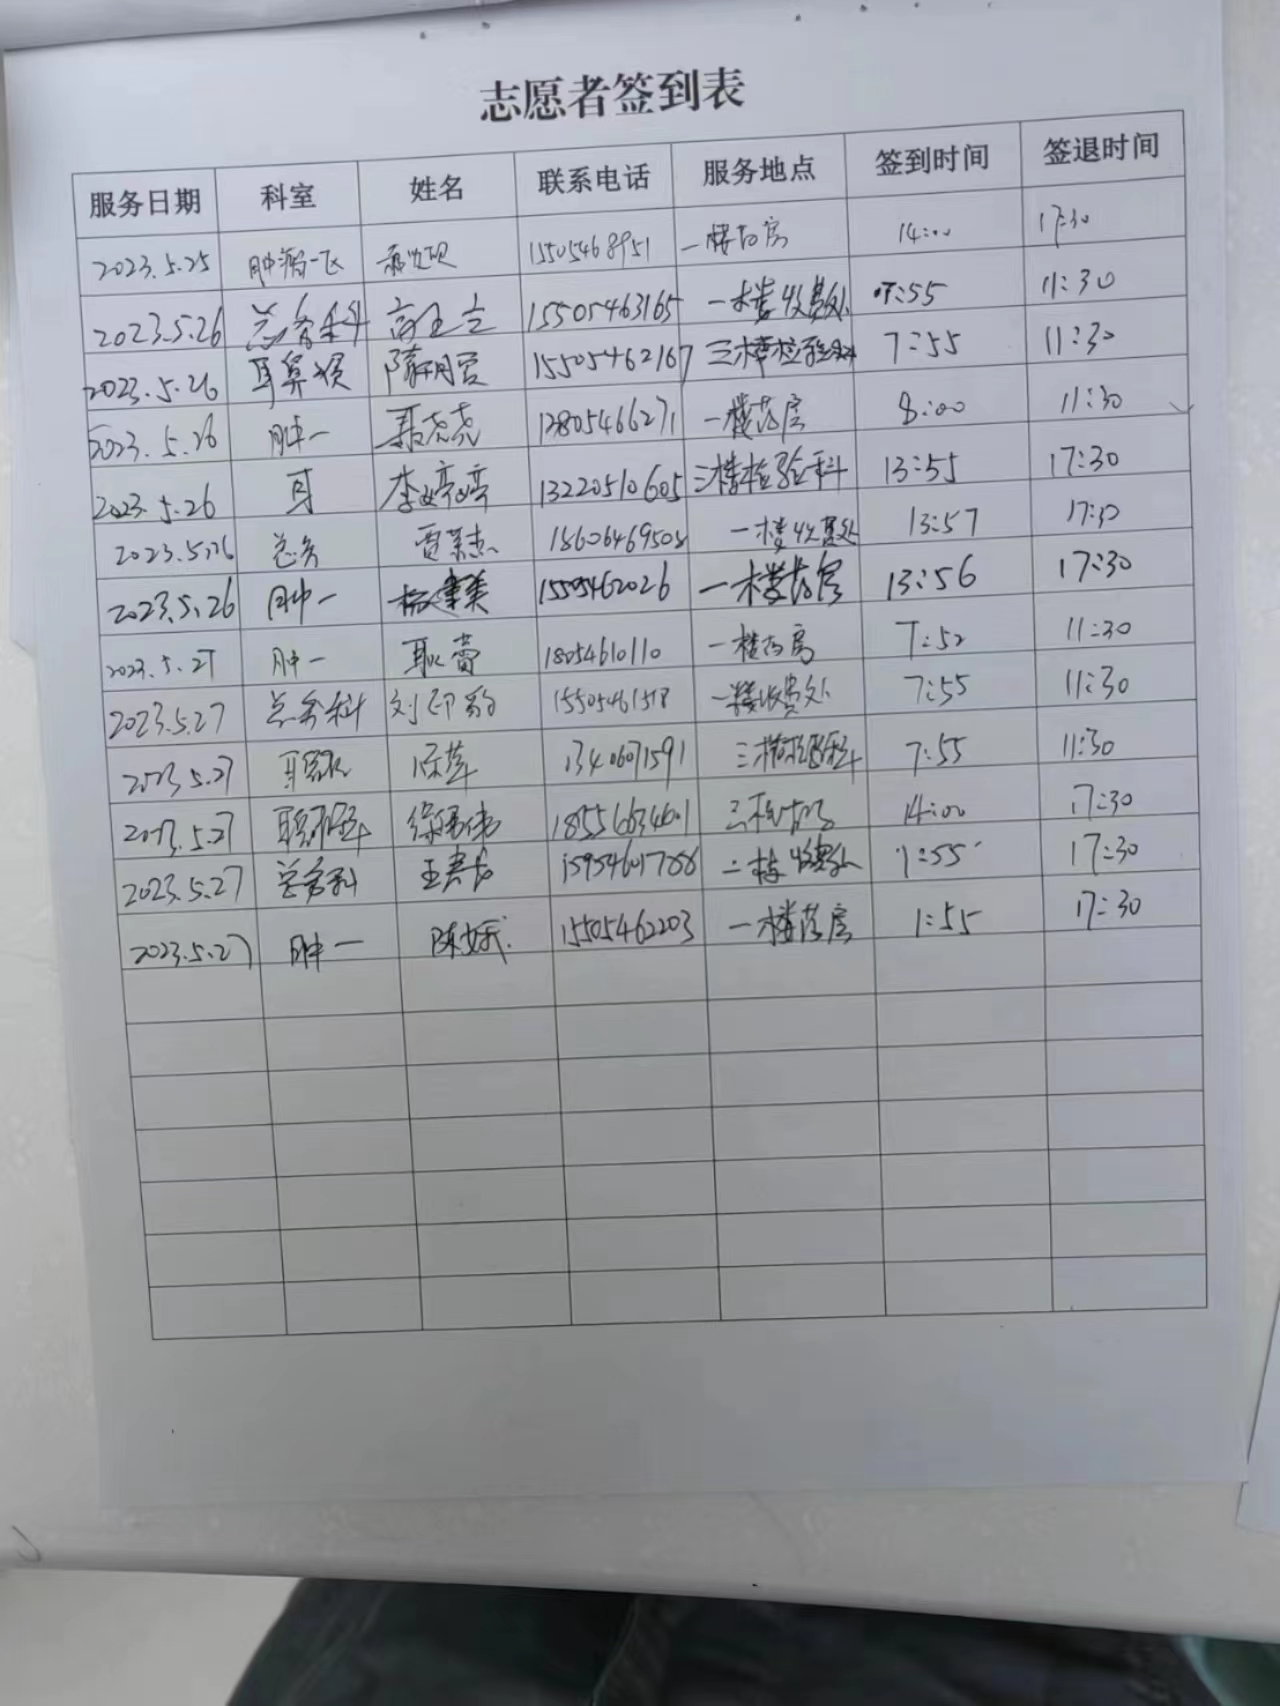 志愿者签到表
服务日期 科室 姓名 联系电话 服务地点 签到时间 签退时间
2023.5.25 肿瘤一区 15505468951 一楼药房 14:00 17:30
2023.5.26 总务科 15505463165 一楼收费处 07:55 11:30
2023.5.26 耳鼻喉 15505462167 三楼检验科 7:55 11:30
2023.5.26 肿一 聂尧尧 12805466271 一楼药房 8:00 11:30
2023.5.26 耳 李婷婷 13220510605 三楼检验科 13:55 17:30
2023.5.26 总务 一楼收费处 13:57 17:30
2023.5.26 肿一 15505462026 一楼药房 13:56 17:30
2023.5.27 肿一 耿蕾 18054610110 一楼药房 7:52 11:30
2023.5.27 总务科 刘印豹 一楼收费处 7:55 11:30
2023.5.27 13406071591 7:55 11:30
2023.5.27 18556634601 14:00 17:30
2023.5.27 总务科 1:55 17:30
2023.5.27 肿一 陈娥 15505462203 一楼药房 1:55 17:30